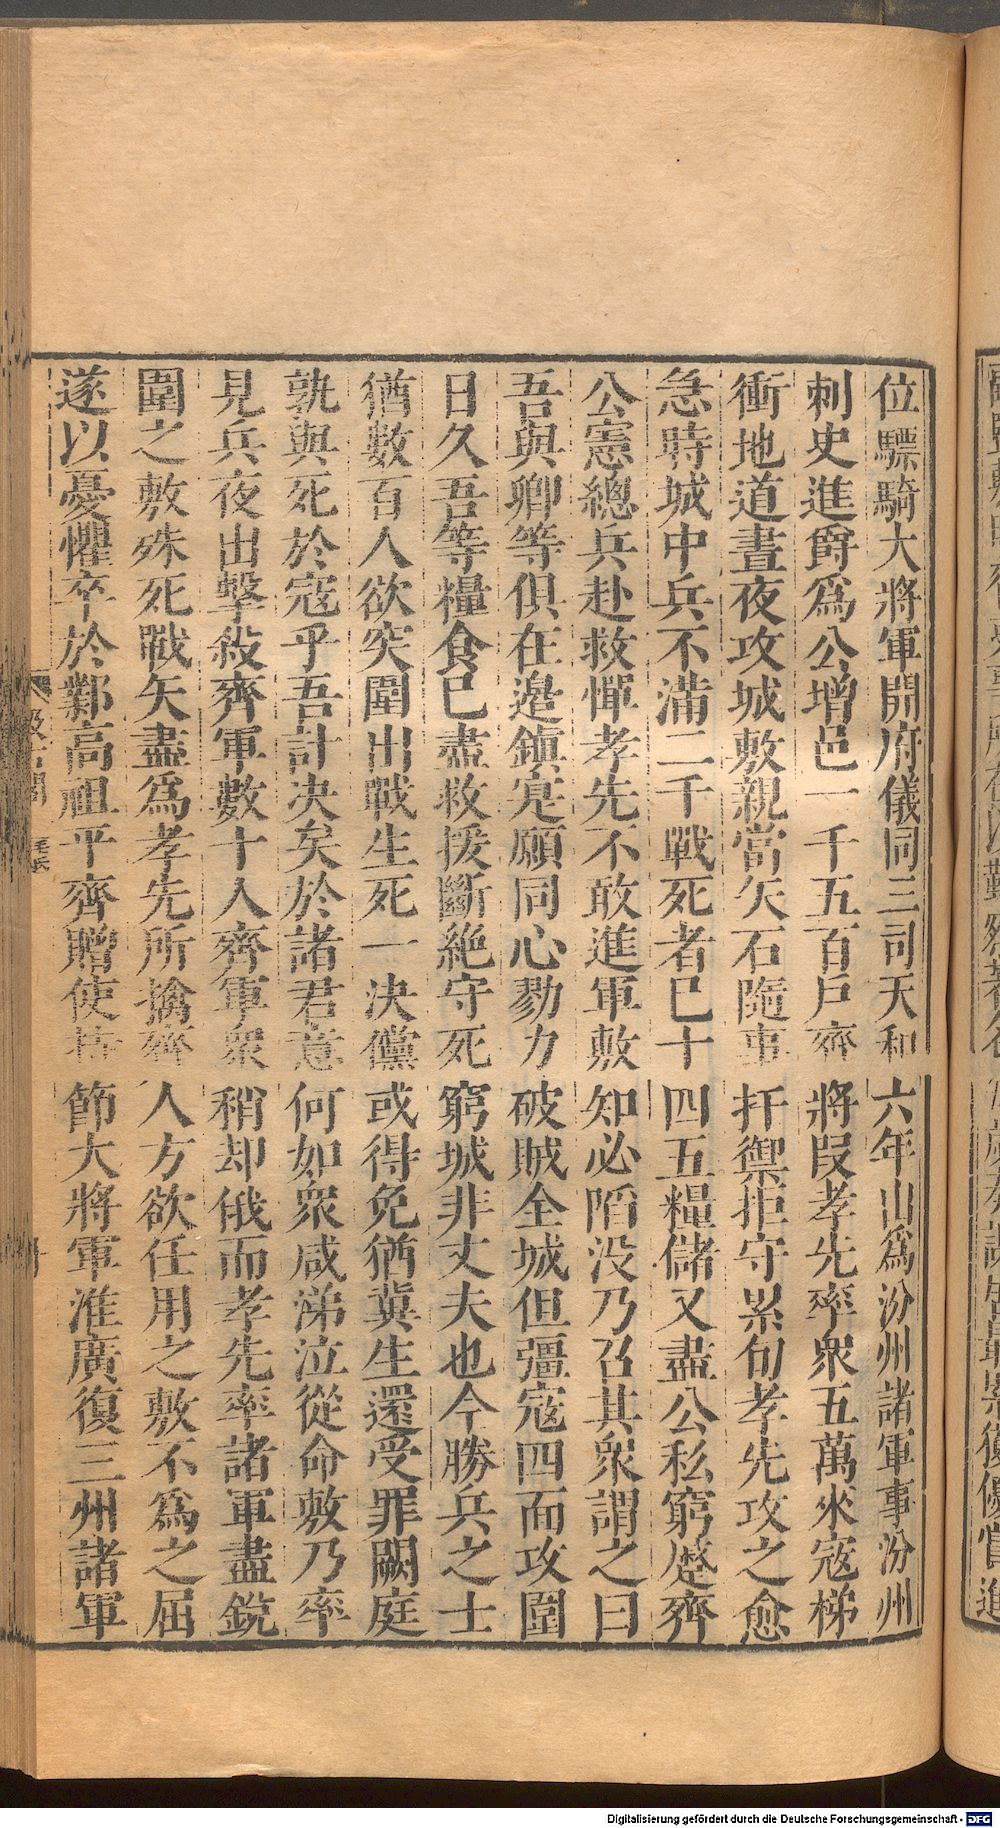 位驃騎大將軍開府儀同三司天和六年出爲汾州諸軍事汾州
刺史進爵爲公增邑一千五百戶齊將叚孝先率衆五萬來寇梯
衝地道晝夜攻城敷親當矢石隨事扞禦拒守累旬孝先攻之愈
急時城中兵不滿二千戰死者已十四五糧儲又盡公私窮蹙齊
公憲總兵赴救憚孝先不敢進軍敷知必陷没乃召其衆謂之曰
吾與卿等俱在邉鎮寔願同心勠力破賊全城但彊寇四面攻圍
日久吾等糧食已盡救援斷絶守死窮城非丈夫也今勝兵之士
猶數百人欲突圍出戰生死一決儻或得免猶冀生還受罪闕庭
孰與死於寇乎吾計决矣於諸君意何如衆咸涕泣從命敷乃率
見兵夜出擊殺齊軍數十人齊軍衆稍却俄而孝先率諸軍盡銳
圍之敷殊死戰矢盡爲孝先所擒齊人方欲任用之敷不爲之屈
遂以憂懼卒於鄴高祖平齊贈使持節大將軍淮廣復三州諸軍
Digitalisierung gefördert durch die Deutsche Forschungsgemeinschaft - DFG